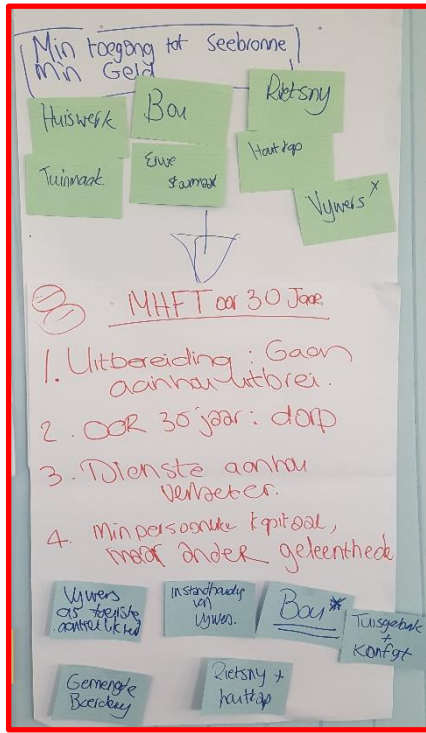 Min toegang tot Seebronne
Min Geld
Huiswerk
Bou
Rietsny
Tuinmaak
Erwe
skoonmaak
Houtkap
Vywers x
MHFT oor 30 Jaar
1. Uitbereiding : Gaan
aanhou uitbrei.
2. OOR 30 jaar : dorp
3. Dienste aanhou
verbeter.
4. Min persoonlike kapitaal,
maar ander geleenthede
Vywers
as toeriste
aantreklikheid
Instandhouding
van
Vywers.
Bou *
Tuisgebak
+
Konfyt
Gemengte
Boerdery
Rietsny +
houtkap